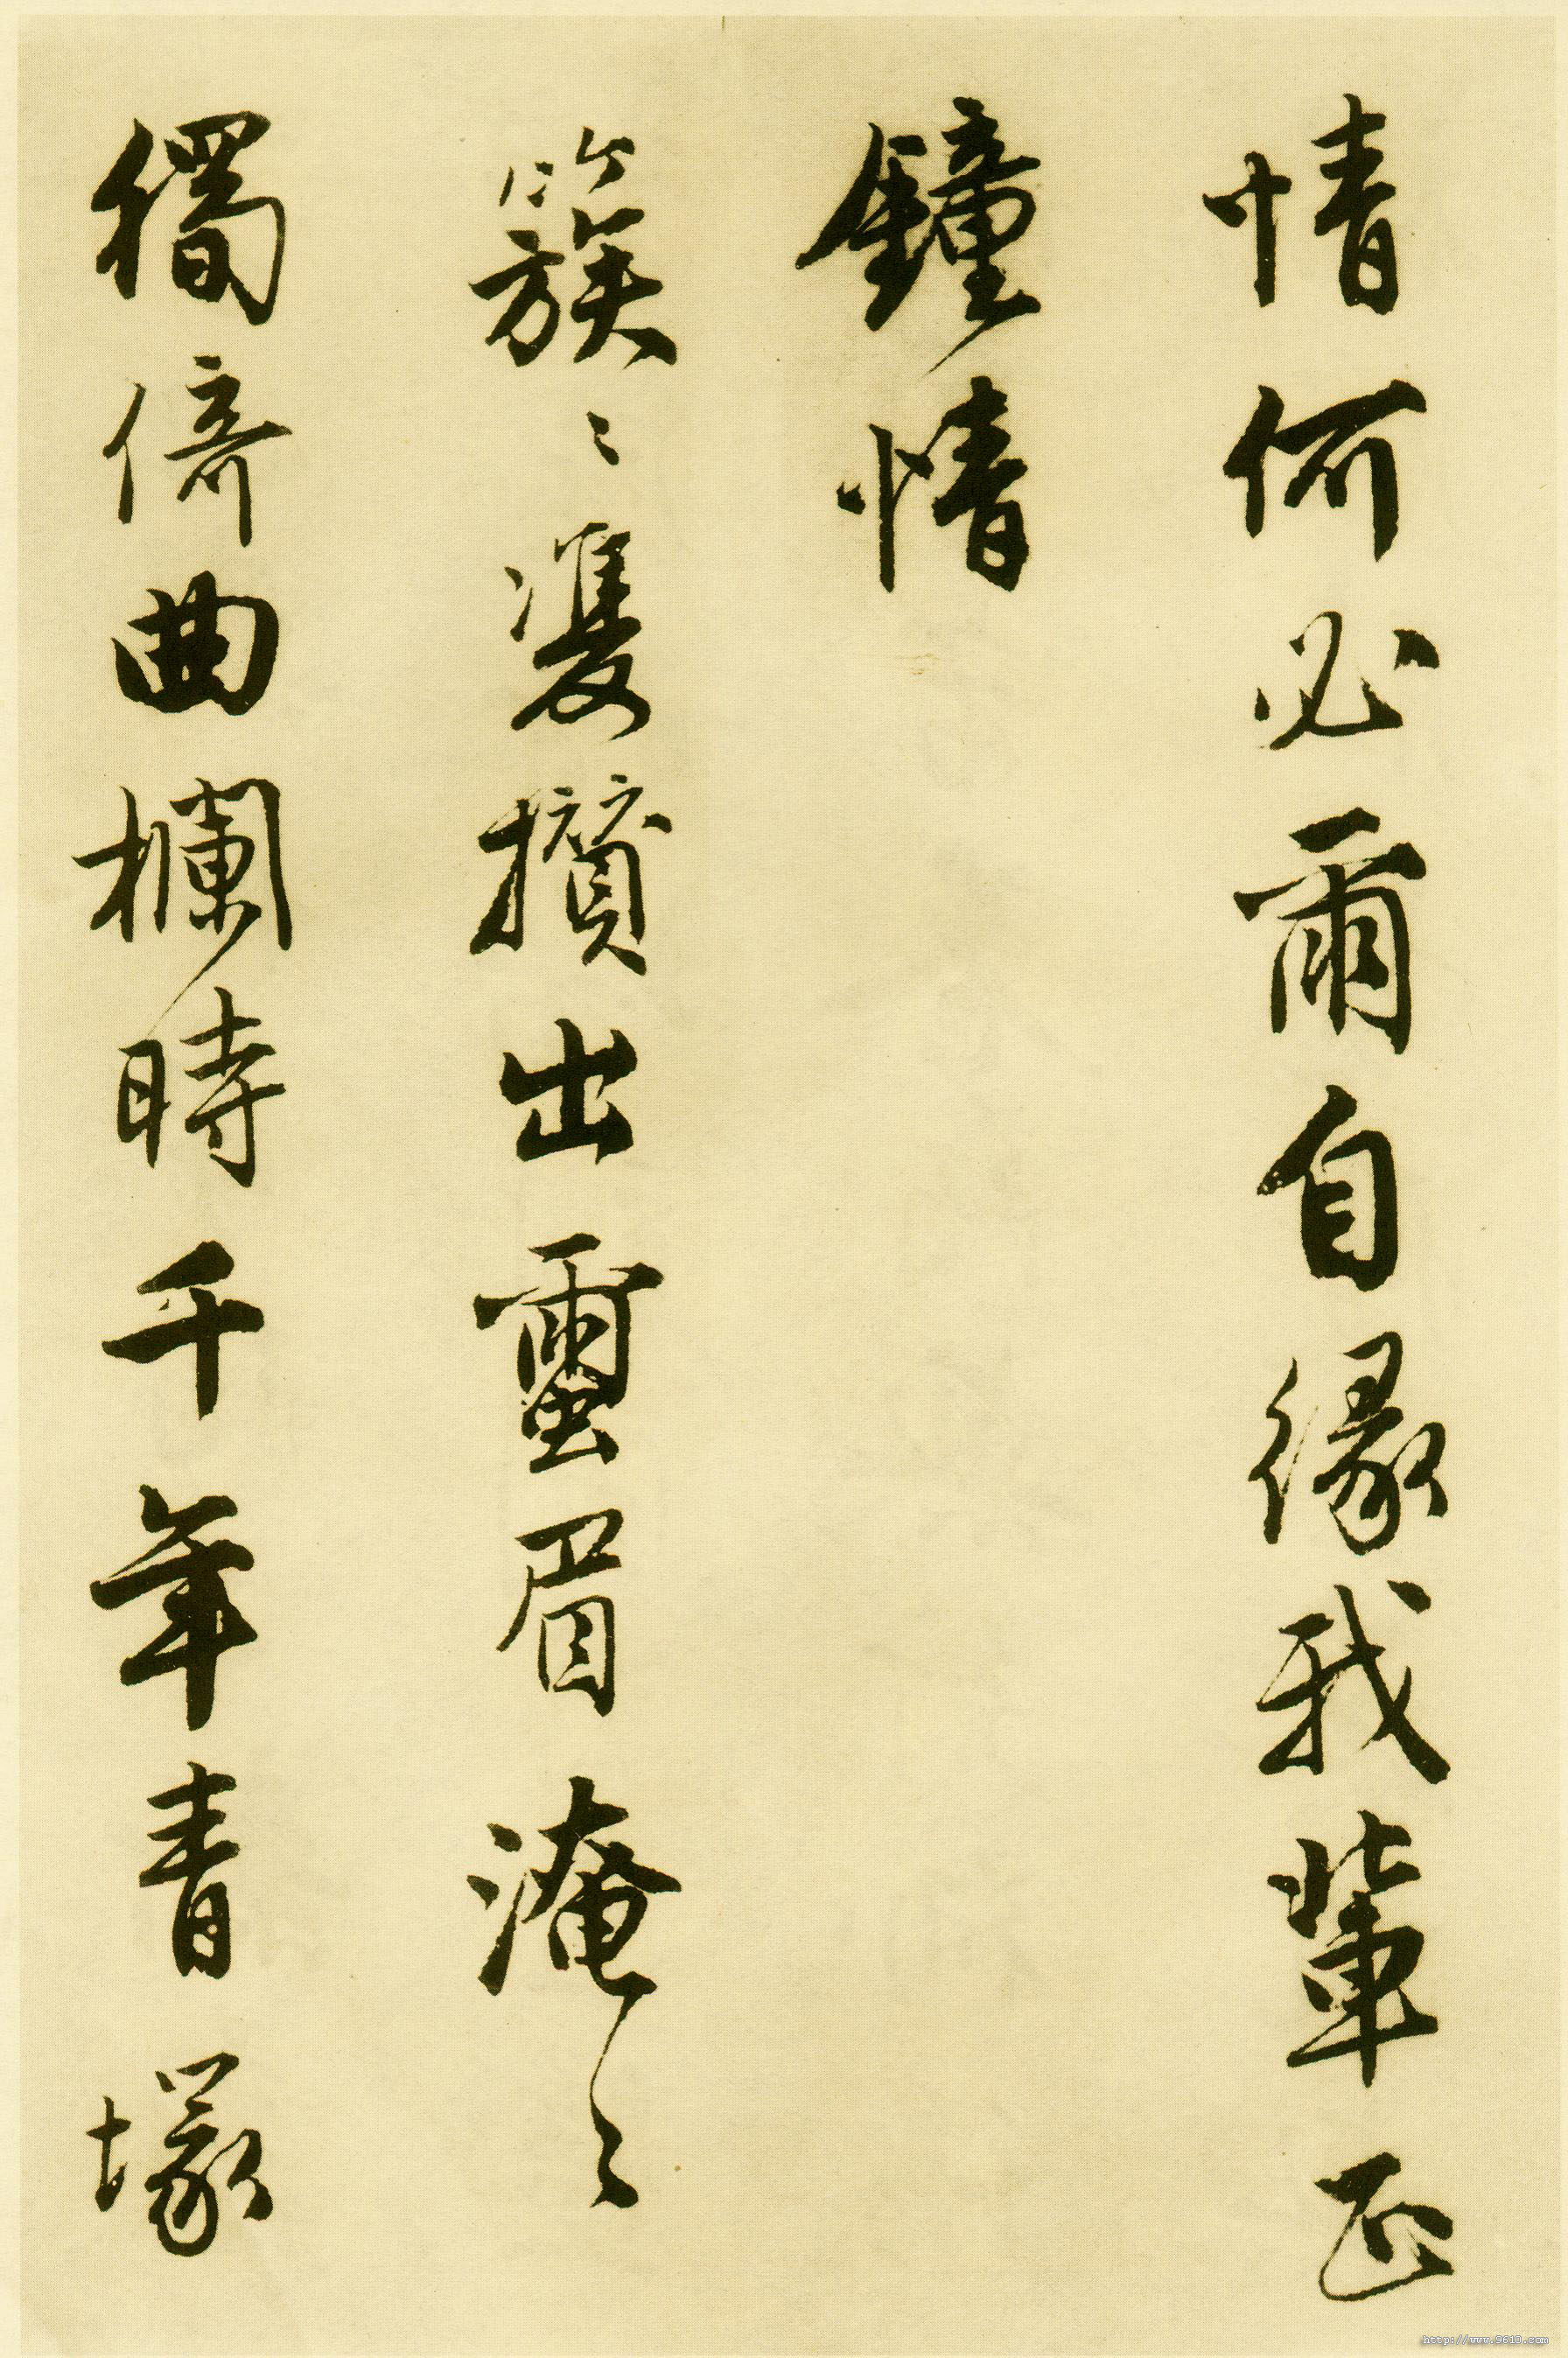 情何必爾自緣我輩正
鐘情
簇〻雙攢出繭眉淹〻
獨倚曲欄時千年青塚
http://www.9610.com